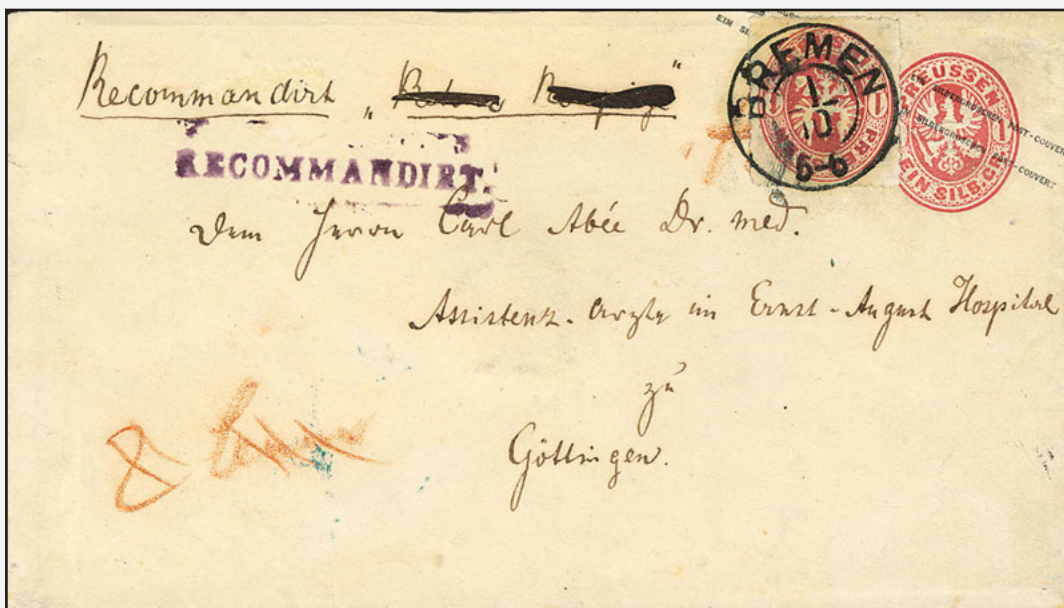 Recommandirt „ "
RECOMMANDIRT.
BREMEN
1
10
5-6
1
PREUSSEN
1
EIN SILB.GR.
EIN SILBERGROSCHEN POST-COUVERT
EIN SILBERGROSCHEN POST-COUVERT
Dem Herrn Carl Abée Dr. med.
Assistenz-Arzte im Ernst-August Hospital
zu
Göttingen.